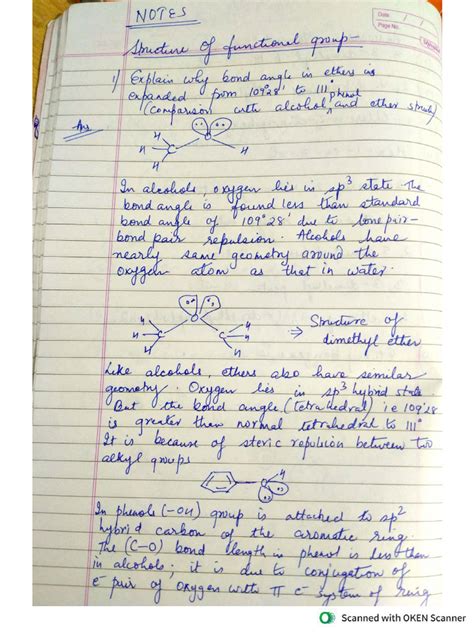 NOTES
Date
Page No.
Structure of functional group-
1) Explain why bond angle in ethers is
expanded from 109°28' to 111°
(comparison with alcohol, phenol and ether structure)
Ans
H
O
H
C
H
H
In alcohols, oxygen lies in sp3 state. The
bond angle is found less than standard
bond angle of 109°28' due to lone pair-
bond pair repulsion. Alcohols have
nearly same geometry around the
oxygen atom as that in water.
H
O
H
H
C
C
H
H
H
⇒ Structure of
dimethyl ether
Like alcohols, ethers also have semilar
geometry. Oxygen lies in sp3 hybrid state
But the bond angle (tetrahedral) i.e 109°28
is greater then normal tetrahedral to 111°
It is because of steric repulsion between two
alkyl groups
H
O
In phenols (-OH) group is attached to sp2
hybrid carbon of the aromatic ring.
The (C-O) bond length in phenol is less then
in alcohols; it is due to conjugation of
e- pair of oxygen with π e- system of ring
Scanned with OKEN Scanner